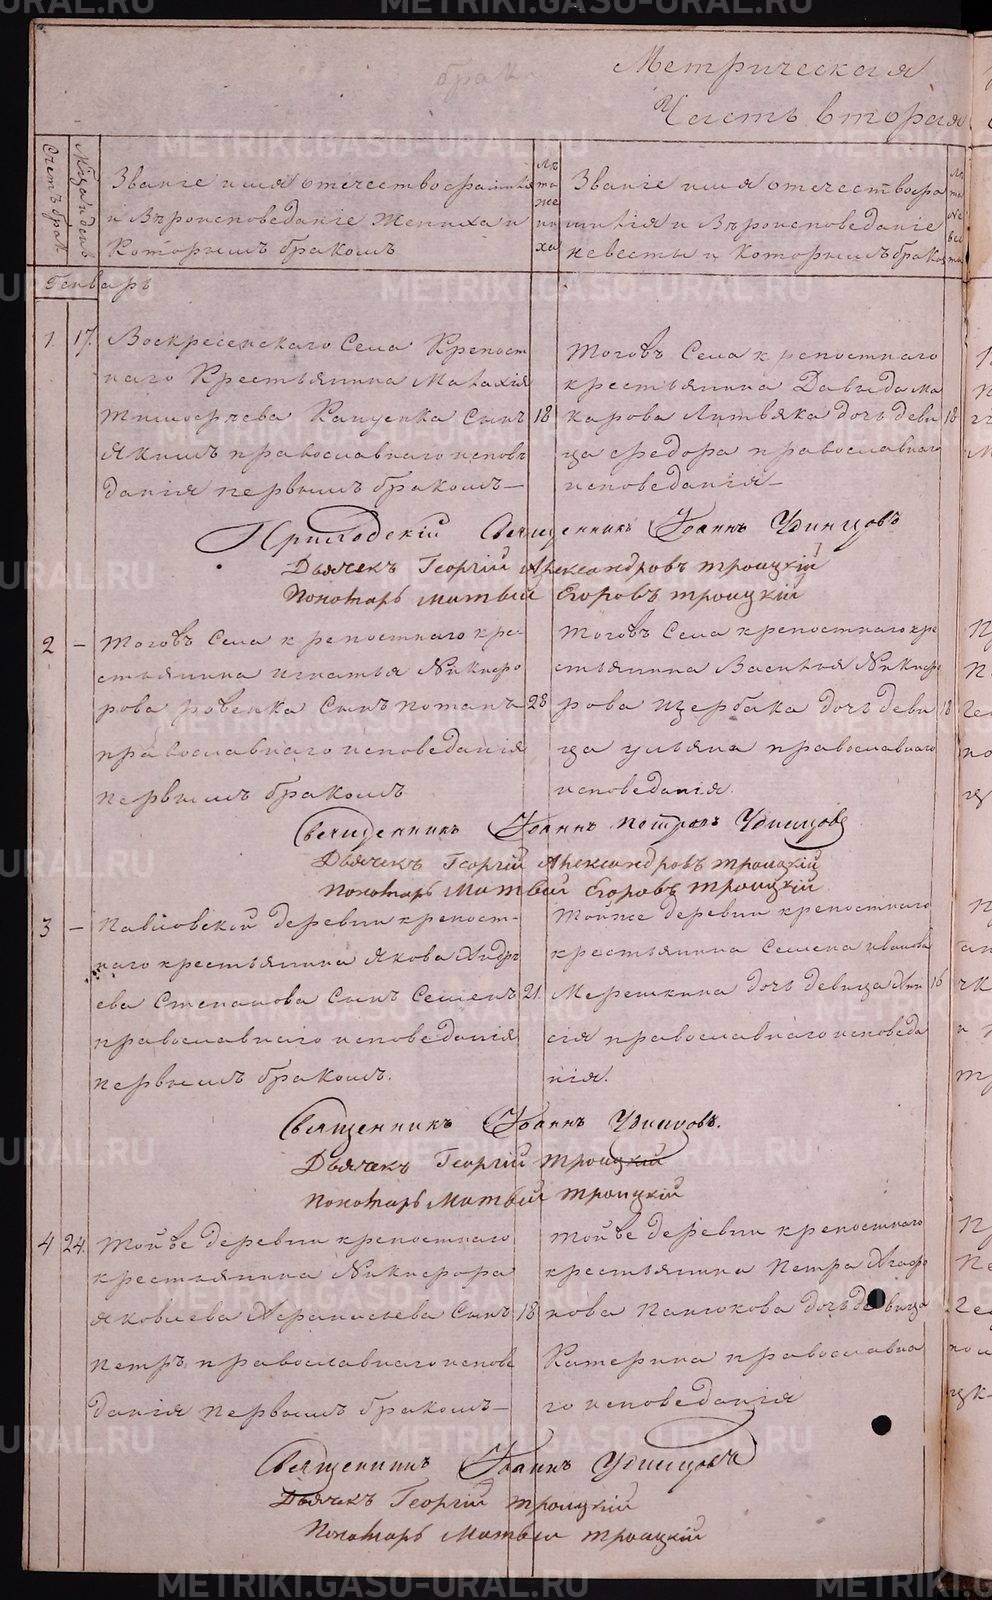 Метрическая
Часть вторая
Счетъ брак
Мѣсяцъ и день
Званiе имя отечество фамилiя
и Вѣроисповеданiе Жениха и
Которымъ бракомъ
Лѣта жениха
Званiе имя отечество фа
милiя и Вѣроисповеданiе
невесты и Которымъ бракомъ
Лѣта невесты
Генварь
1. 17. Воскресенскаго Села Крепост
наго Крестьянина Малахiя
Тимофѣева Сынъ 18
Якимъ православнаго исповѣ
данiя первымъ бракомъ—
Тоговъ Села крепостнаго
крестьянина Давыда Ма
карова Литвяка дочь деви 18
ца Федора православнаго
исповеданiя—
Приходскiй Священникъ Iоаннъ Удинцовъ
Дьячекъ Георгiй Александровъ троицкiй
Пономарь Матвѣй Егоровъ троицкiй
2 — Тоговъ Села крепостнаго кре-
стьянина игнатья Никифо
рова ровенка Сынъ потапъ 28
православнаго исповеданiя
первымъ бракомъ
Тоговъ Села крепостнаго кре
стьянина Василья Никифо
рова щербака дочь деви 18
ца ульяна православнаго
исповеданiя.
Священникъ Iоаннъ Петровъ Удинцовъ
Дьячекъ Георгiй Александровъ троицкiй
Пономарь Матвѣй Егоровъ троицкiй
3 — Павловской деревни крепост-
наго крестьянина Якова Андрѣ
ева Степанова Сынъ Семенъ 21.
православнаго исповеданiя
первымъ бракомъ.
Тойже деревни крепостнаго
крестьянина Семена иванова
Мерешкина дочь девица Ани 16
сiя православнаго исповеда
нiя.
Священникъ Iоаннъ Удинцовъ.
Дьячекъ Георгiй троицкiй
Пономарь Матвѣй троицкiй
4 24. Тойве деревни крепостнаго
крестьянина Никифора
Яковлева Афанасьева Сынъ 18
петръ православнаго испове
данiя первымъ бракомъ—
Тойве деревни крепостнаго
крестьянина Петра Агафо
нова Панюкова дочь девица
Катерина православна
го исповеданiя
Священникъ Iоаннъ Удинцовъ
Дьячекъ Георгiй троицкiй
Пономарь Матвѣй троицкiй
METRIKI.GASO-URAL.RU